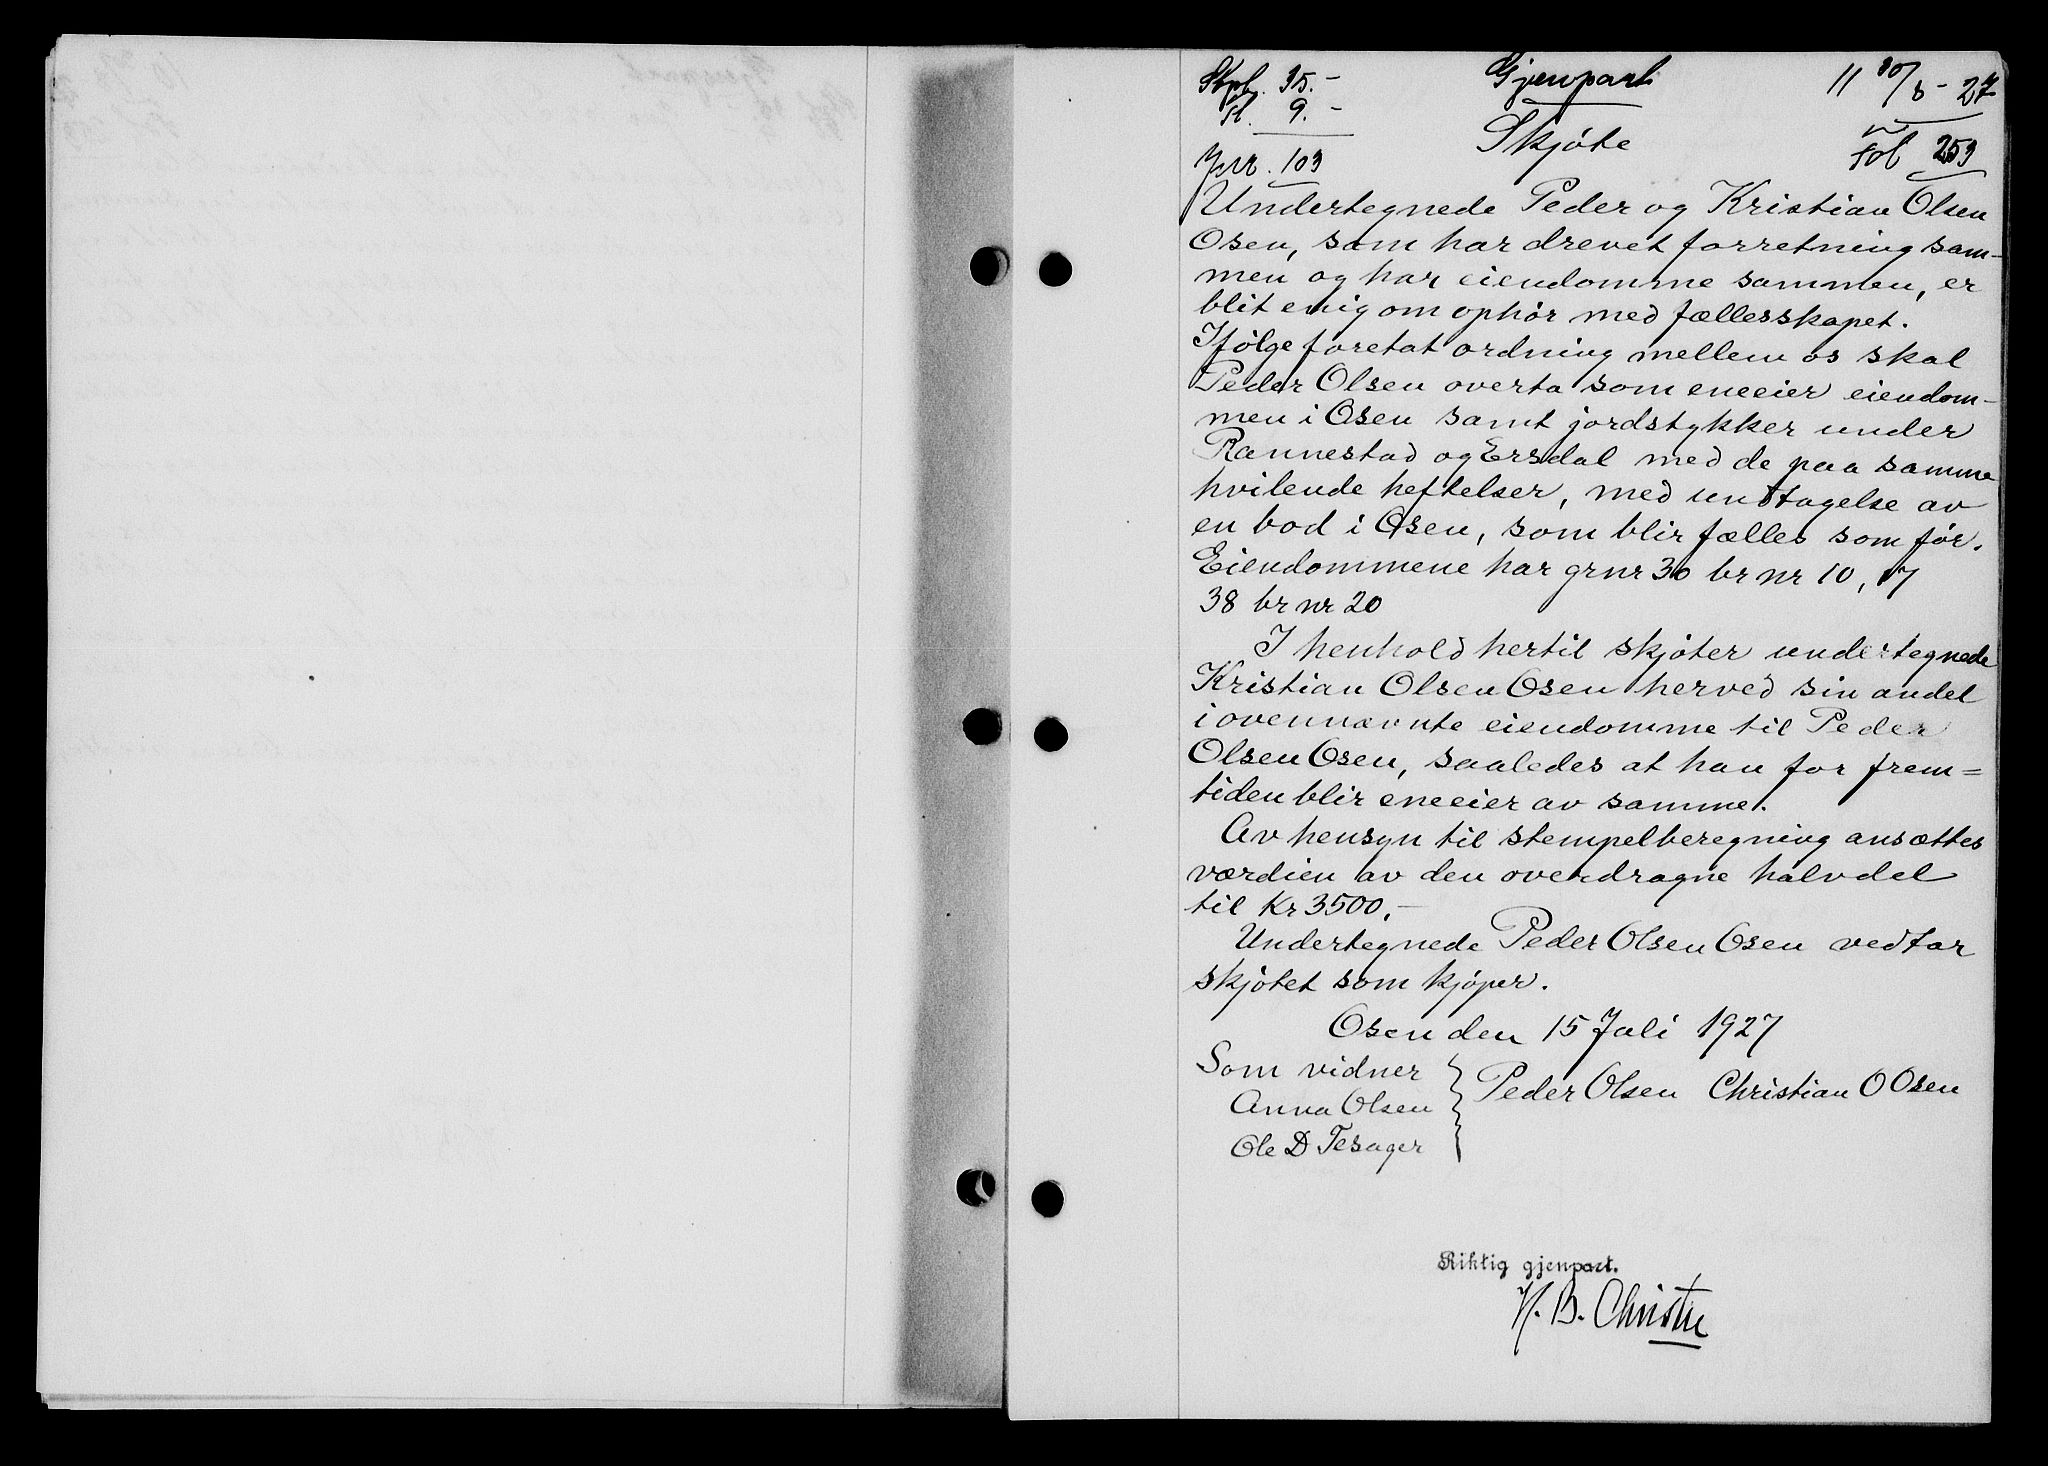 Stpl. 35.-
Gjenpart
11 30/8 - 27
Tl. 9.-
Skjöte
Fol 253
Jnr. 103
Undertegnede Peder og Kristian Olsen
Osen, som har drevet forretning sam-
men og har eiendomme sammen, er
blit enig om ophör med fællesskapet.
Ifölge foretat ordning mellem os skal
Peder Olsen overta som eneeier eiendom-
men i Osen samt jordstykker under
Rannestad og Ersdal med de paa samme
hvilende heftelser, med undtagelse av
en bod i Osen, som blir fælles som för.
Eiendommene har grnr 30 br nr 10, 17
38 br nr 20
I henhold hertil skjöter undertegnede
Kristian Olsen Osen herved sin andel
i ovennævnte eiendomme til Peder
Olsen Osen, saaledes at han for frem=
tiden blir eneeier av samme.
Av hensyn til stempelberegning ansættes
værdien av den overdragne halvdel
til Kr 3500,-
Undertegnede Peder Olsen Osen vedtar
skjötet som kjöper.
Osen den 15 Juli 1927
Som vidner
Peder Olsen Christian O Osen
Anna Olsen
Ole D Tesager
Riktig gjenpart.
H. B. Christie